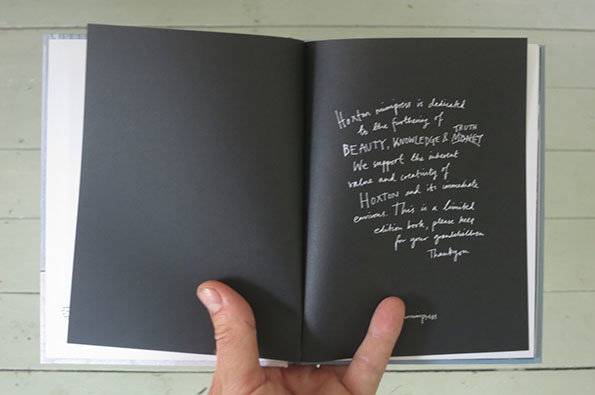 Hoxton minipress is dedicated
to the furthering of
TRUTH
BEAUTY, KNOWLEDGE & MONEY
We support the inherent
value and creativity of
HOXTON and its immediate
environs. This is a limited
edition book, please keep
for your grandchildren
Thankyou
minipress